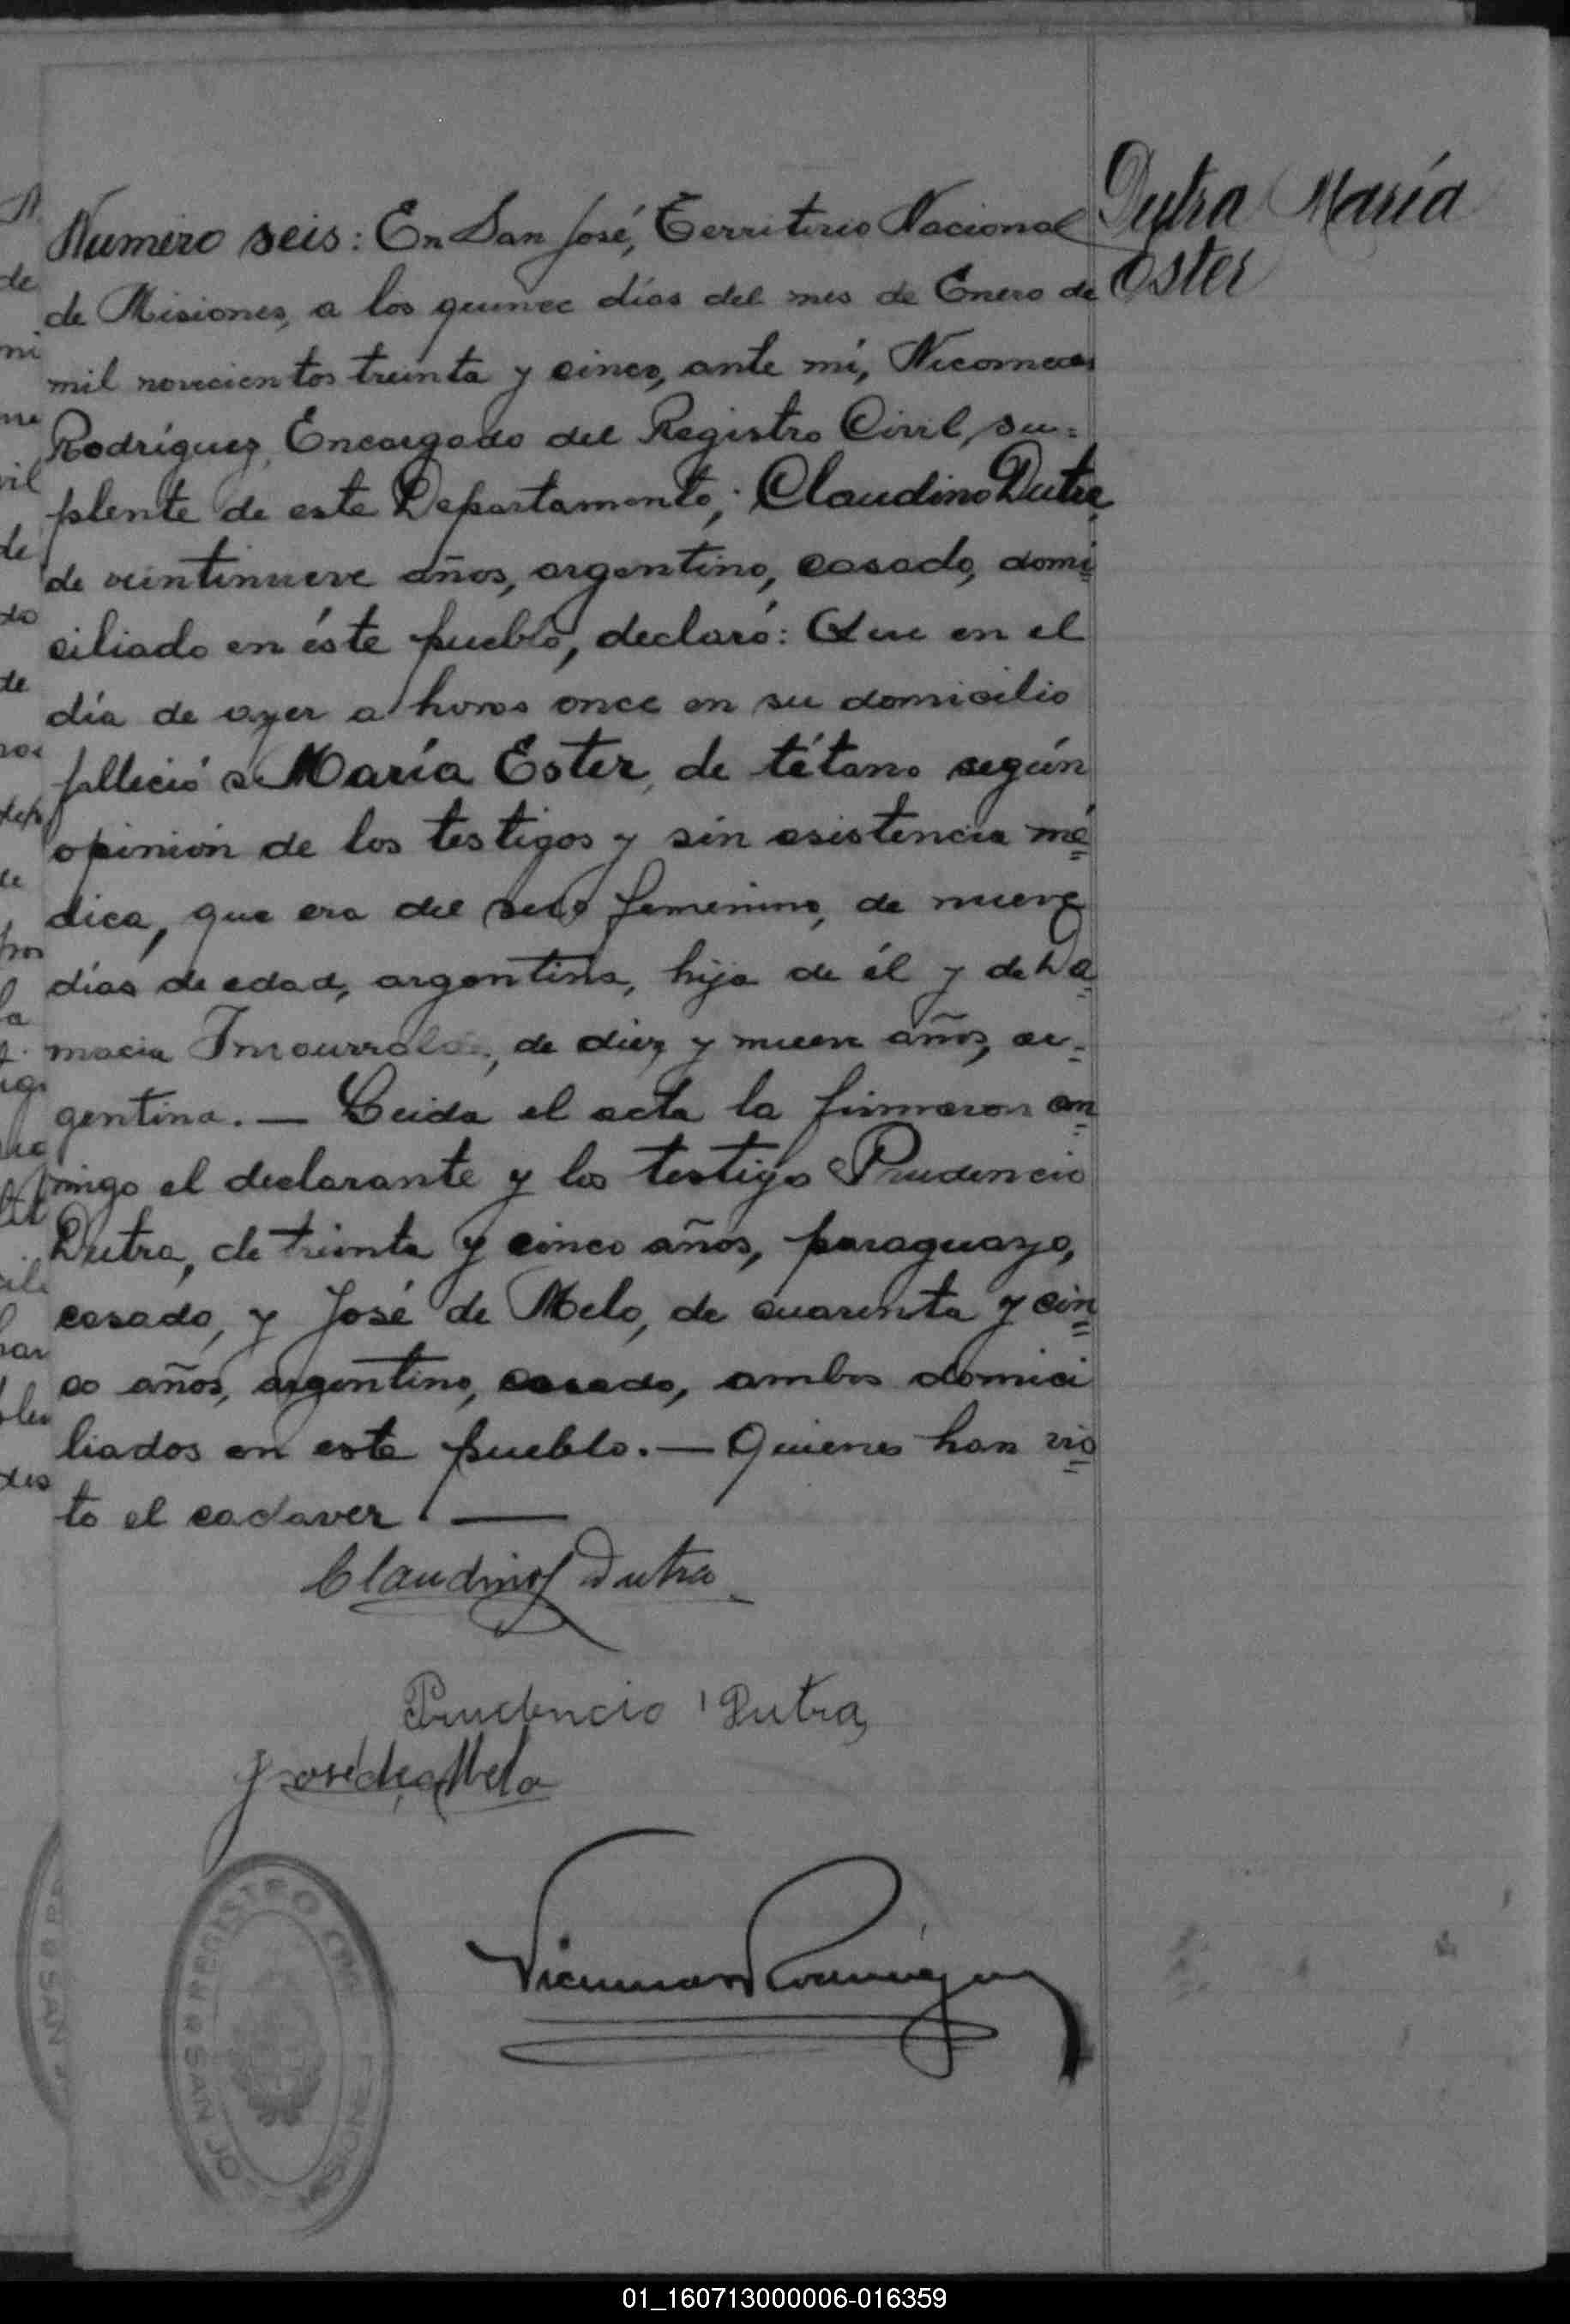 Dutra María
Ester
Numero seis: En San José, Territorio Nacional
de Misiones, a los quince días del mes de Enero de
mil novecientos treinta y cinco, ante mí, Nicomedes
Rodríguez, Encargado del Registro Civil, su=
plente de este Departamento; Claudino Dutra,
de veintinueve años, argentino, casado, domi
ciliado en éste pueblo, declaró: Que en el
día de ayer a horas once en su domicilio
falleció María Ester, de tétano según
opinión de los testigos y sin asistencia mé
dica, que era del sexo femenino, de nueve
días de edad, argentina, hija de él y de Da
macia, de diez y nueve años, ar-
gentina. — Leida el acta la firmaron con
migo el declarante y los testigo Prudencio
Dutra, de treinta y cinco años, paraguayo,
casado, y José de Melo, de cuarenta y cin
co años, argentino, casado, ambos domici
liados en este pueblo. — Quienes han vis
to el cadaver. —
Claudino Dutra
Prudencio Dutra
José de Melo
REGISTRO CIVIL
SAN JOSE
MISIONES
01_160713000006-016359